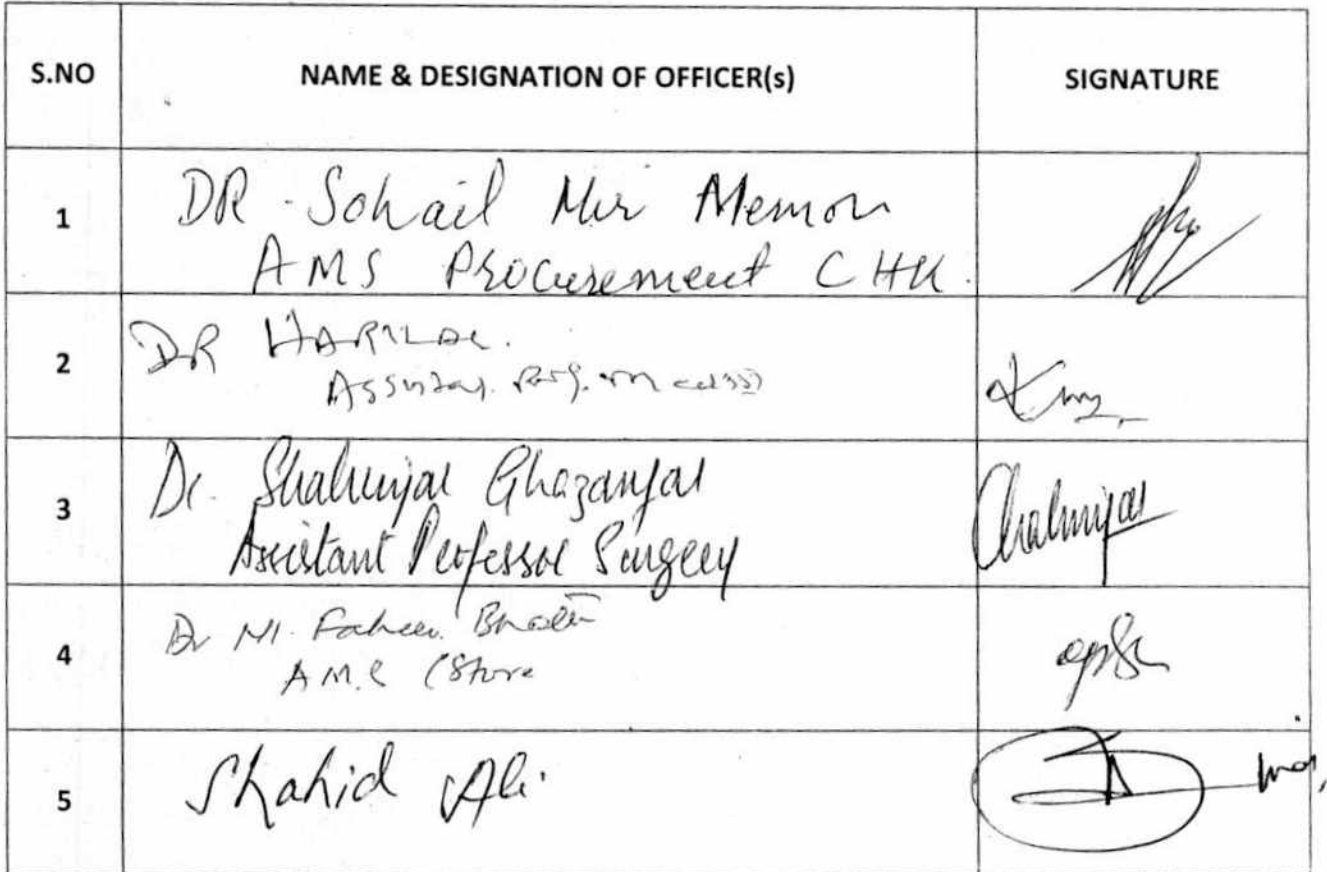 S.NO NAME & DESIGNATION OF OFFICER(s) SIGNATURE
1 DR. Sohail Mir Memon
AMS Procurement CHK.
2 DR HARILAL.
3 Dr. Shahriyar Ghazanfar
Assistant Professor Surgery
4 Dr M. Faheem
AMS (Store
5 Shahid Ali